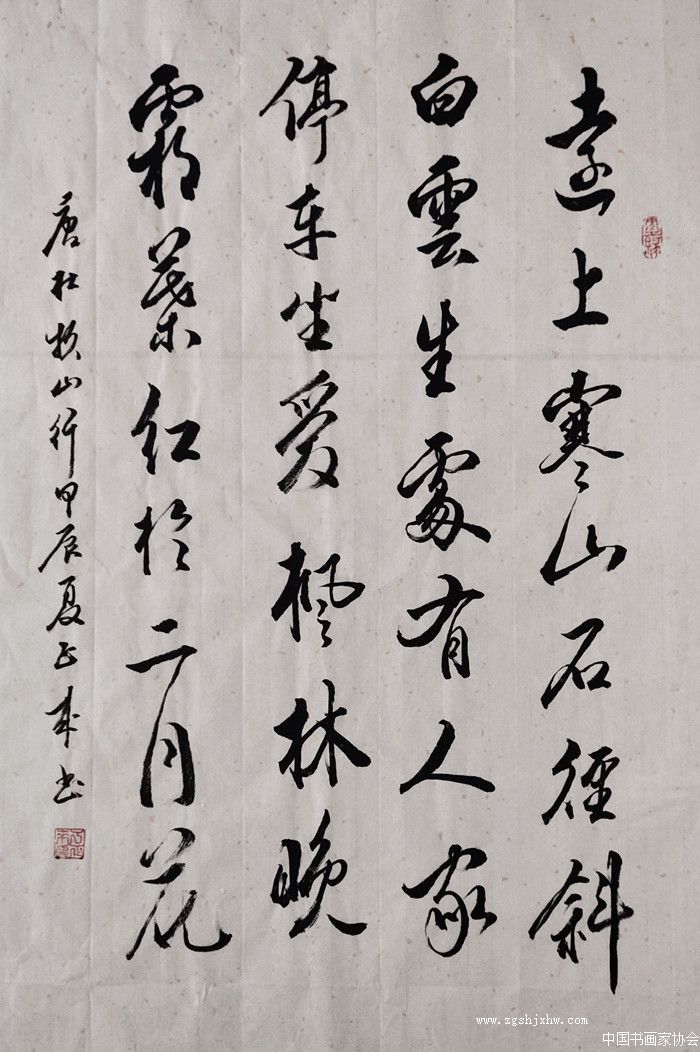 遠上寒山石徑斜
白雲生處有人家
停车坐爱楓林晚
霜葉红於二月花
唐杜牧山行甲辰夏正成书
www.zgshjxhw.com
中国书画家协会